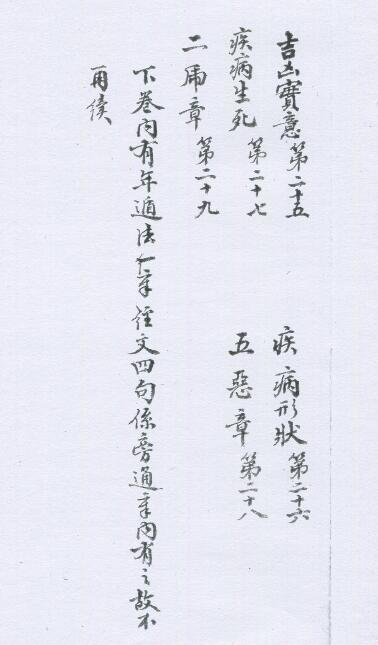 吉凶寶意第二十五
疾病形狀第二十六
疾病生死第二十七
五惡章第二十八
二馬章第二十九
下卷内有年遁法一章经文四句係旁通章内有之故不
再續